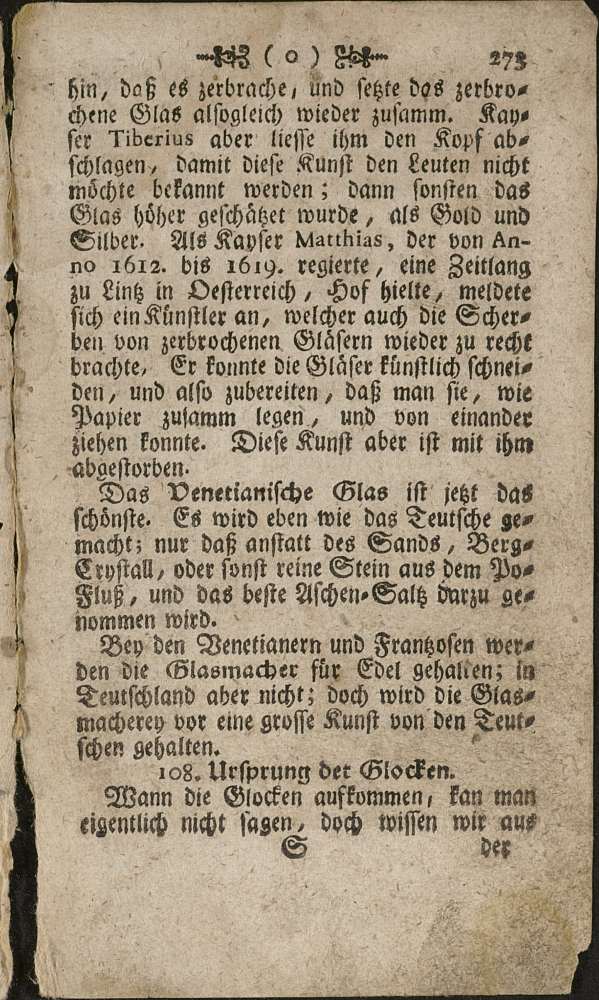 ( o ) 273
hin, daß es zerbrache, und setzte das zerbro-
chene Glas alsogleich wieder zusamm. Kay-
ser Tiberius aber liesse ihm den Kopf ab-
schlagen, damit diese Kunst den Leuten nicht
möchte bekannt werden; dann sonsten das
Glas höher geschätzet wurde, als Gold und
Silber. Als Kayser Matthias, der von An-
no 1612. bis 1619. regierte, eine Zeitlang
zu Lintz in Oesterreich, Hof hielte, meldete
sich ein Künstler an, welcher auch die Scher-
ben von zerbrochenen Gläsern wieder zu recht
brachte, Er konnte die Gläser künstlich schnei-
den, und also zubereiten, daß man sie, wie
Papier zusamm legen, und von einander
ziehen konnte. Diese Kunst aber ist mit ihm
abgestorben.
Das Venetianische Glas ist jetzt das
schönste. Es wird eben wie das Teutsche ge-
macht; nur daß anstatt des Sands, Berg-
Crystall, oder sonst reine Stein aus dem Po-
Fluß, und das beste Aschen-Saltz darzu ge-
nommen wird.
Bey den Venetianern und Frantzosen wer-
den die Glasmacher für Edel gehalten; in
Teutschland aber nicht; doch wird die Glas-
macherey vor eine grosse Kunst von den Teut-
schen gehalten.
108. Ursprung der Glocken.
Wann die Glocken aufkommen, kan man
eigentlich nicht sagen, doch wissen wir aus
S der